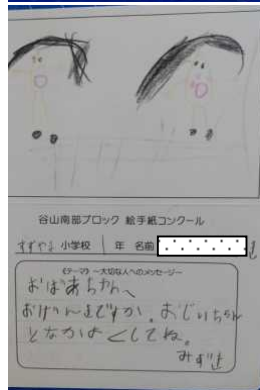 谷山南部ブロック 絵手紙コンクール
小学校 1 年 名前
《テーマ》 〜大切な人へのメッセージ〜
おばあちゃん、
おげんきですか。おじいちゃん
となかよくしてね。
みずき